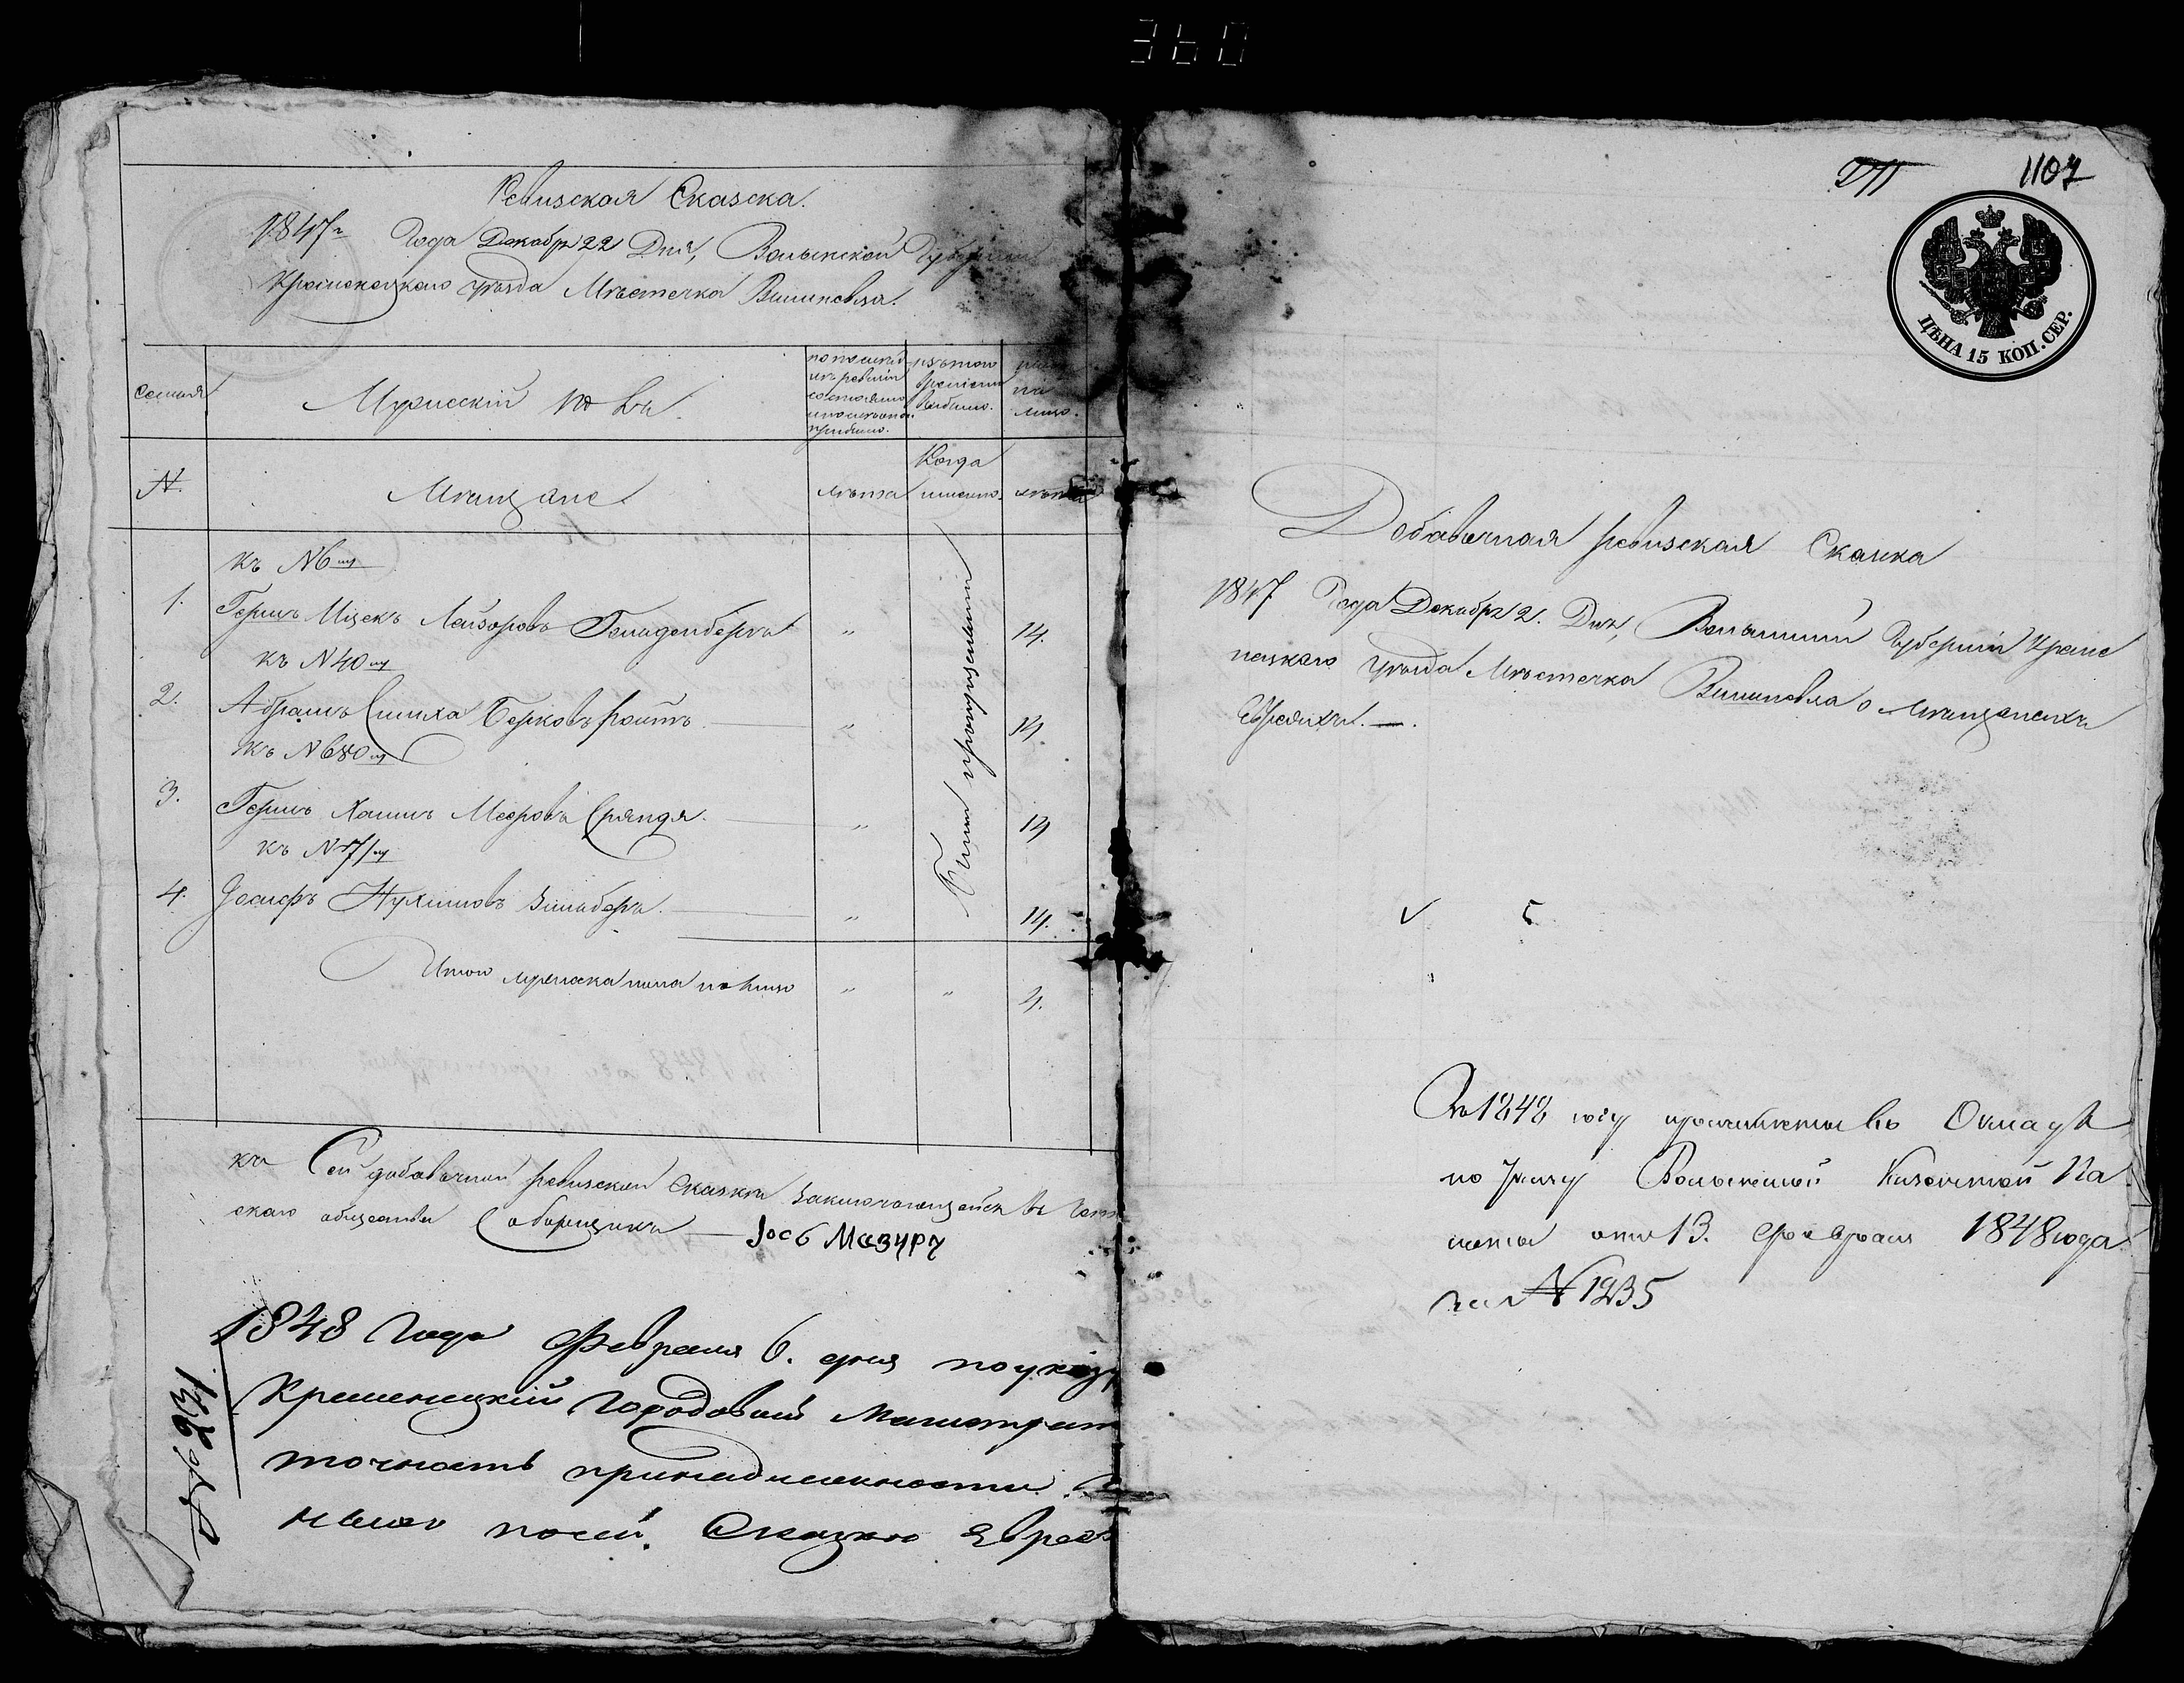 360
Ревизская Сказска.
1847го Года Декабря 22 Дня, Волынской Губернии
Кременецкаго уѣзда Мѣстечка Вишневца.
Семьи
Мужескій полъ
по послѣдней
ревизіи
состояло
и послѣ того
прибыло.
изъ того
времени
выбыло.
нынѣ
на
лицо.
N.
Мѣщане.
лѣта
Когда
именно.
лѣта
къ N 6му
1. Гершъ Ицекъ Лейзоровъ Гольденбергъ " 14.
къ N 40му
2. Абрамъ Симха Берковъ Ройтъ. " 14.
къ N 680му
3. Гершъ Хаимъ Мееровъ " 14
къ N 71му
4. Іосифъ Нухимовъ " 14.
Были пропущенны
Итого мужеска пола на лицо " " 4.
къ Сей добавочной ревизской сказкѣ заключающейся въ
скаго общества Сборщикъ — Іось Мазуръ
1848 Года Февраля 6. дня по указу
Кременецкій Городовый Магистрат
точность принадлежности
по сей. Сказкѣ Еврее
№ 231
1107
ЦѢНА 15 КОП. СЕР.
Добавочная ревизская Сказка
1847 Года Декабря 2. Дня, Волынской Губерніи Креме
нецкаго уѣзда Мѣстечка Вишневца о мѣщанахъ
Евреяхъ. —.
Съ 1848 году въ Окладъ
по указу Волынской Казенной Па
латы отъ 13. февраля 1848 года
за № 1235